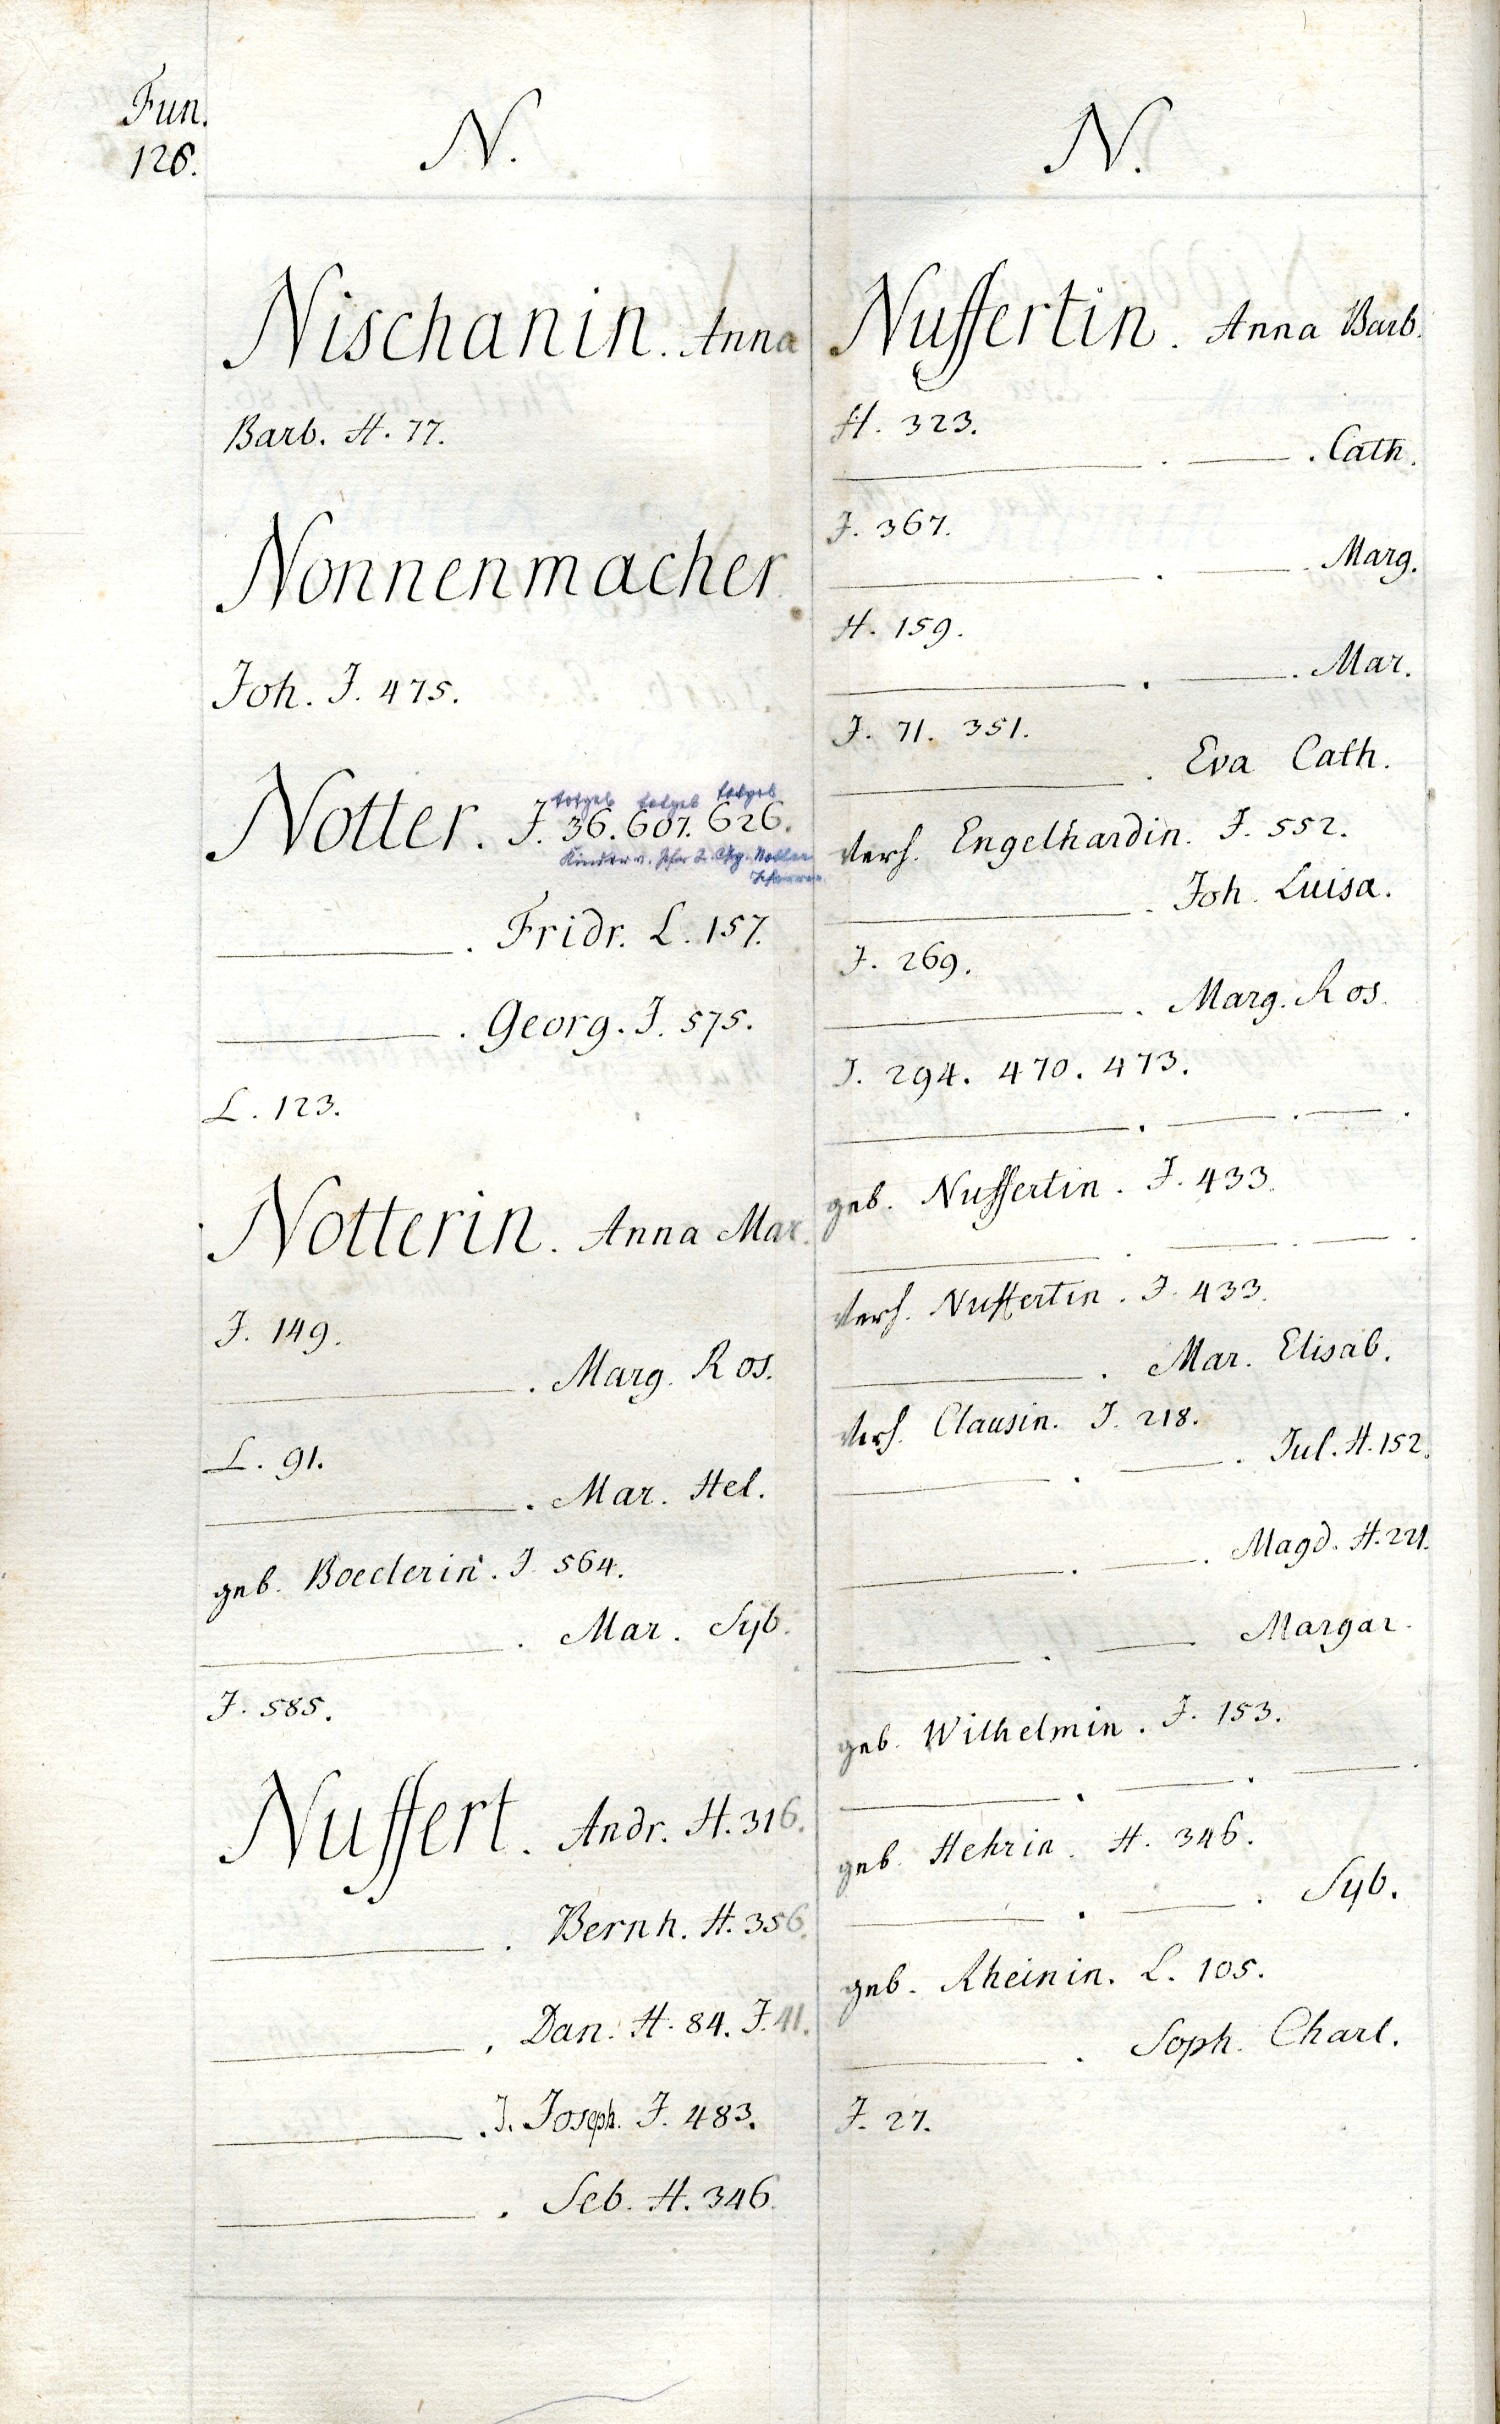 Fun.
126.
N.
Nischanin. Anna
Barb. H. 77.
Nonnenmacher
Joh. J. 475.
totgeb totgeb totgeb
Notter. J. 36. 607. 626.
Kinder v.
———. Fridr. L. 157.
———. Georg. J. 575.
L. 123.
Notterin. Anna Mar.
J. 149.
———. Marg. Ros.
L. 91.
———. Mar. Hel.
geb. Boeclerin. J. 564.
———. Mar. Syb.
J. 585.
Nuffert. Andr. H. 316.
———. Bernh. H. 356.
———. Dan. H. 84. J. 41.
———. J. Joseph. J. 483.
———. Seb. H. 346.
N.
Nuffertin. Anna Barb.
H. 323.
———. ———. Cath.
J. 367.
———. ———. Marg.
H. 159.
———. ———. Mar.
J. 71. 351.
———. Eva Cath.
verh. Engelhardin. J. 552.
———. Joh. Luisa.
J. 269.
———. Marg. Ros.
J. 294. 470. 473.
———. ———. ———.
geb. Nuffertin. J. 433.
———. ———. ———.
verh. Nuffertin. J. 433.
———. Mar. Elisab.
verh. Clausin. J. 218.
———. ———. Jul. H. 152.
———. ———. Magd. H. 221.
———. ——— Margar.
geb. Wilhelmin. J. 153.
———. ———. ———.
geb. Hehrin. H. 346.
———. ———. Syb.
geb. Rheinin. L. 105.
———. Soph. Charl.
J. 27.